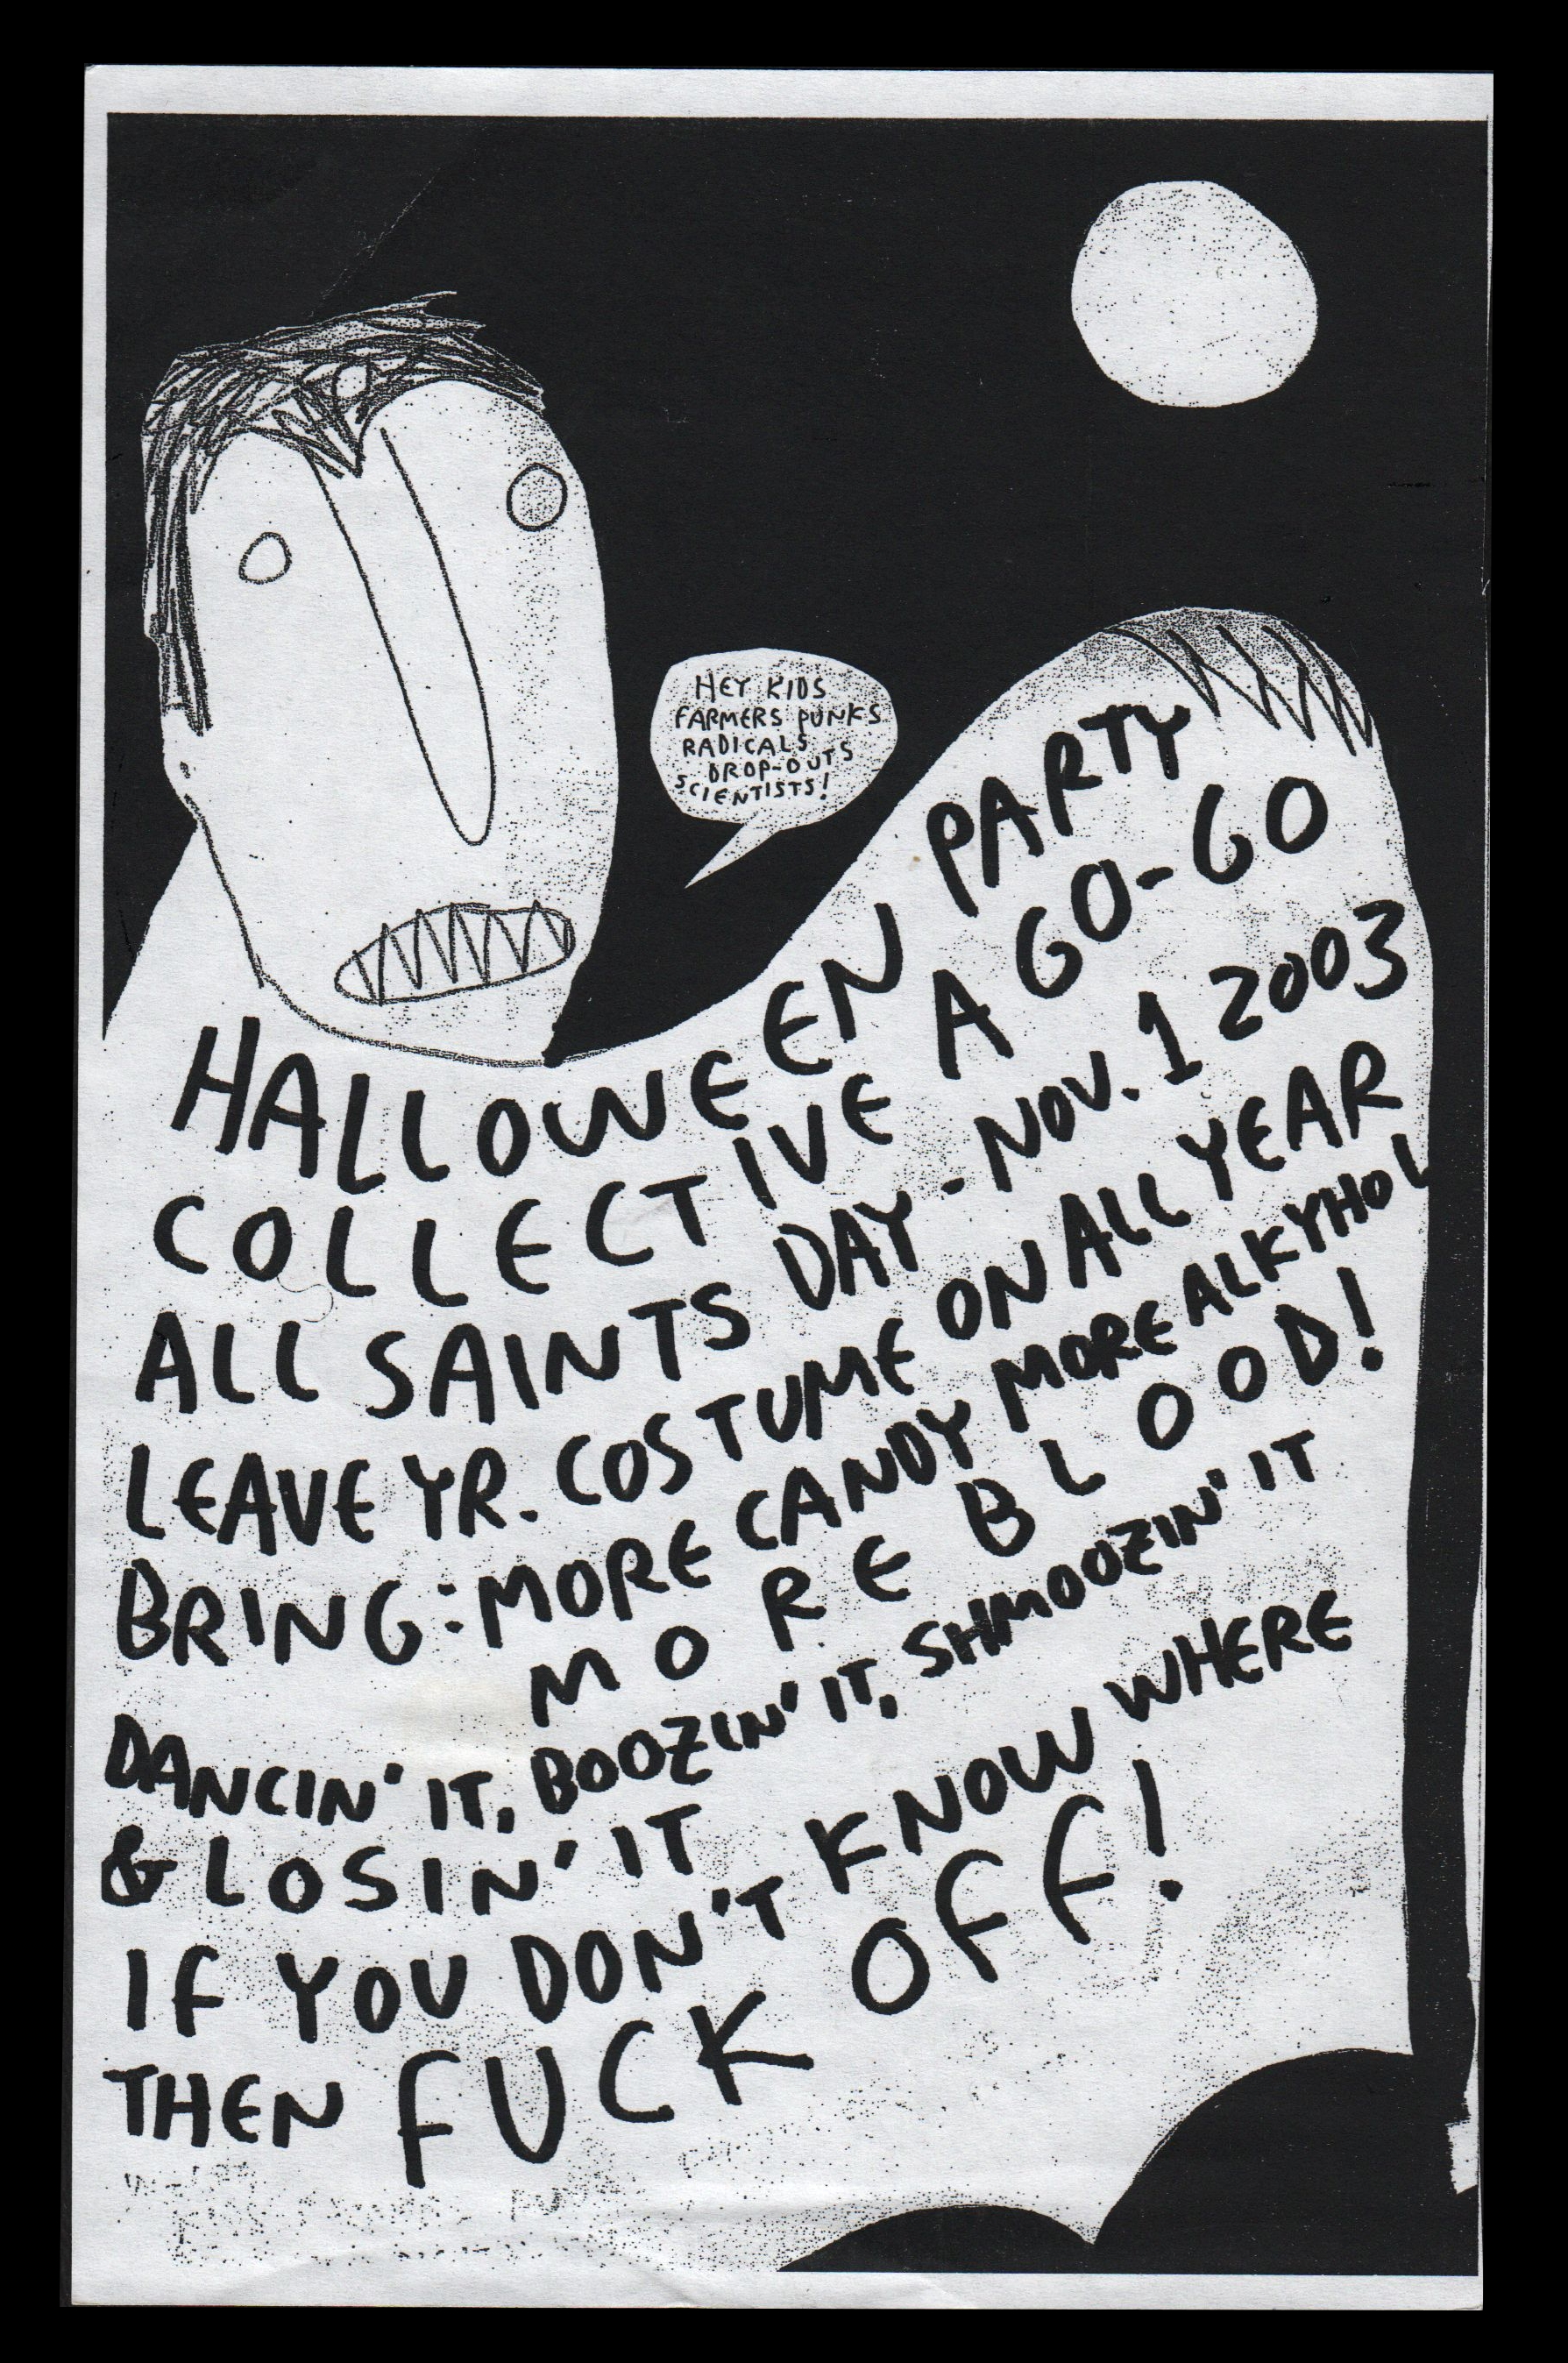 HEY KIDS
FARMERS PUNKS
RADICALS
DROP-OUTS
SCIENTISTS!
HALLOWEEN PARTY
COLLECTIVE A GO-GO
ALL SAINTS DAY - NOV. 1 2003
LEAVE YR. COSTUME ON ALL YEAR
BRING: MORE CANDY MORE ALKYHOL
MORE BLOOD!
DANCIN' IT, BOOZIN' IT, SHMOOZIN' IT
& LOSIN' IT
IF YOU DON'T KNOW WHERE
THEN FUCK OFF!